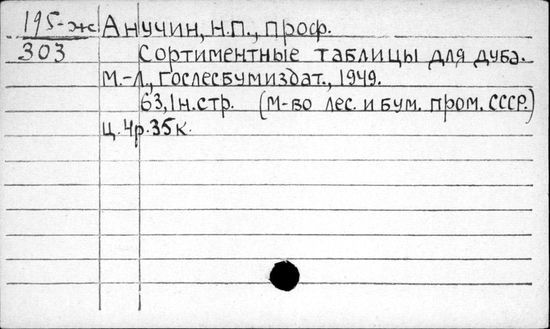 195-ж Анучин, Н.П., проф.
303 Сортиментные таблицы для дуба.
М.-Л., Гослесбумиздат., 1949.
63,1н.стр. (М-во лес. и бум. пром. СССР.)
Ц. 4р.35к.